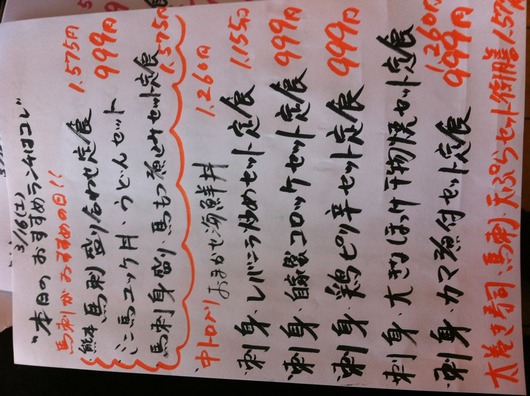 3/16(土)
"本日のおすすめランチはコレ"
馬刺がおすすめの日!!
熊本馬刺盛り合わせ定食 1.575円
ミニ馬ユッケ丼・うどんセット 999円
馬刺・刺身盛り・馬もつ煮込みセット定食 1.575円
中トロ入りおまかせ海鮮丼 1.260円
・刺身・レバニラ炒めセット定食 1.155円
・刺身・自家製コロッケセット定食 999円
・刺身・鶏ピリ辛セット定食 999円
刺身・大きなほっけ干物焼セット定食 1.260円
・刺身・カマ煮付セット定食 999円
太巻き寿司・馬刺・天ぷらセット御膳 1.57